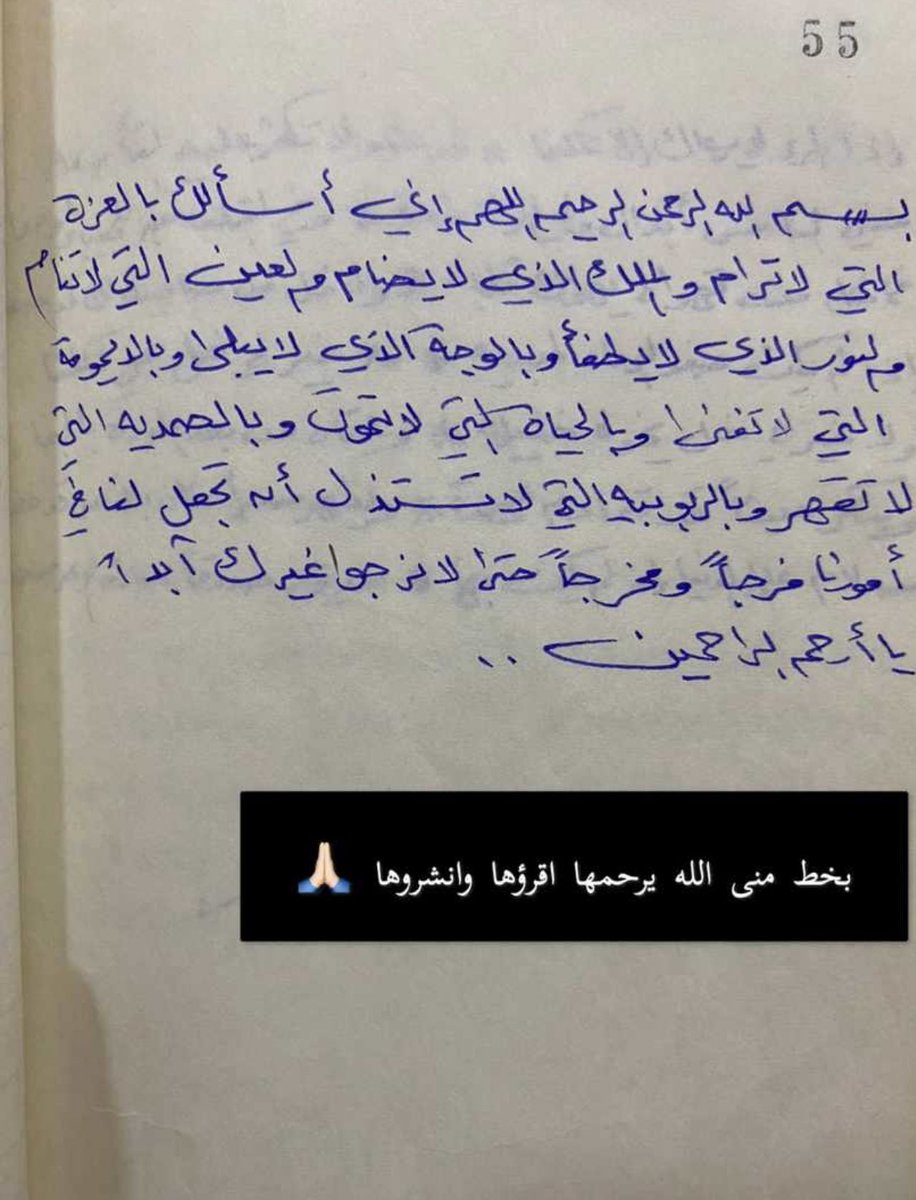 55
بسم الله الرحمن الرحيم اللهم إني أسألك بالعزة
التي لا ترام والملك الذي لا يضام والعين التي لا تنام
والنور الذي لا يطفأ وبالوجه الذي لا يبلى وبالديمومة
التي لا تفنى وبالحياة التي لا تموت وبالصمديه التي
لا تقهر وبالربوبيه التي لا تستذل أن تجعل لنا في
أمورنا فرجاً ومخرجاً حتى لا نرجوا غيرك أبداً
يا أرحم الراحمين ..
بخط منى الله يرحمها اقرؤها وانشروها 🙏🏻